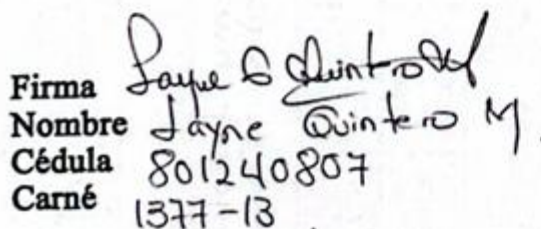 Firma Jayne G Quintero M
Nombre Jayne Quintero M.
Cédula 801240807
Carné 1377-13